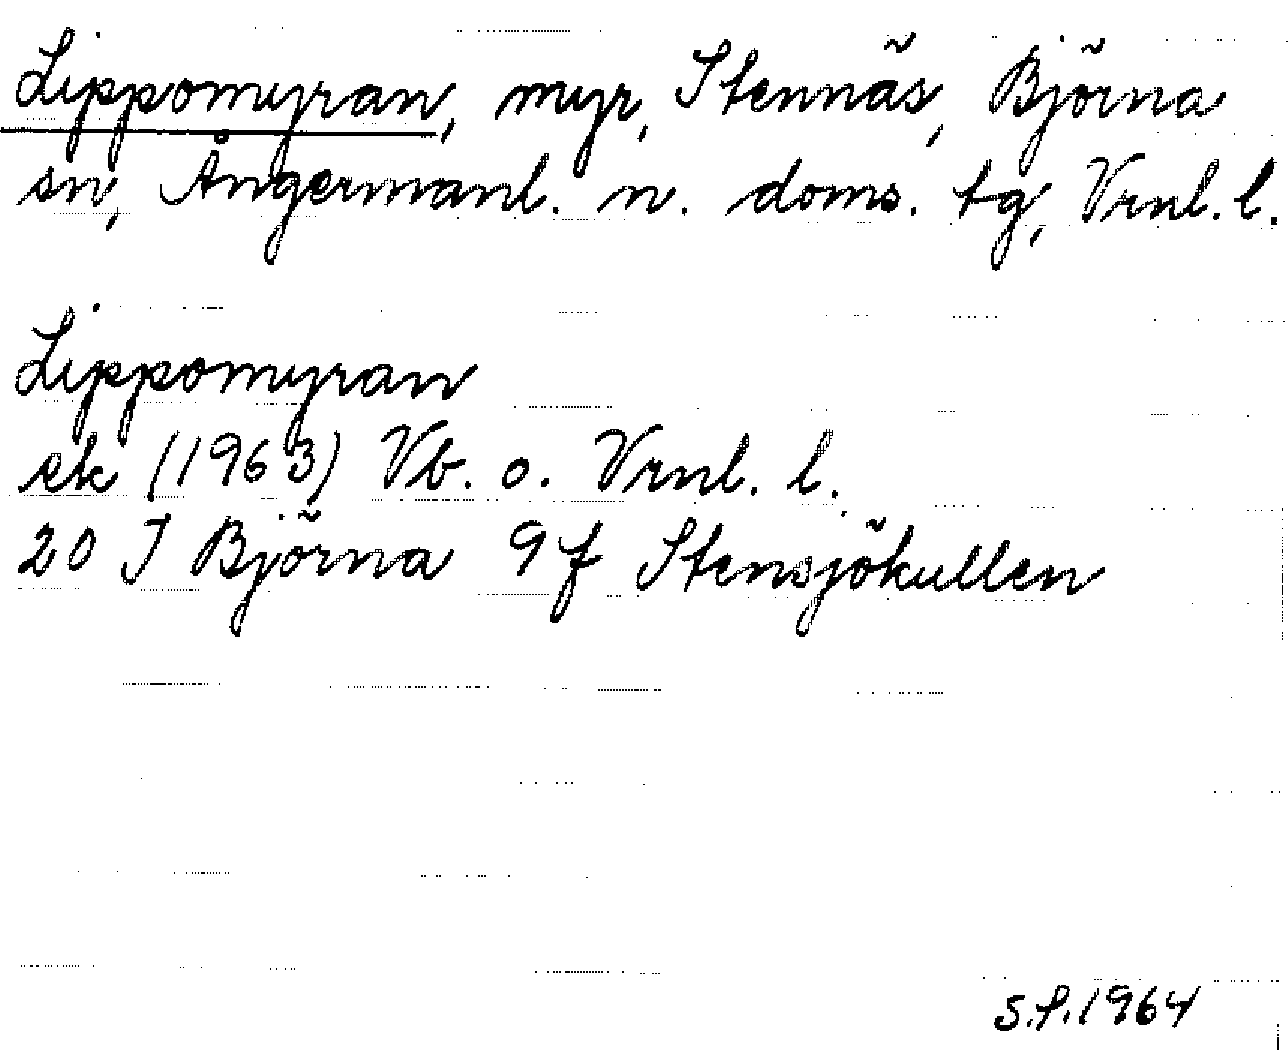 Lippomyran, myr, Stennäs, Björna
sn, Ångermanl. n. doms. tg, Vrnl. l.
Lippomyran
ek (1963) Vb. o. Vrnl. l.
20 J Björna 9f Stensjökullen
S.P. 1964